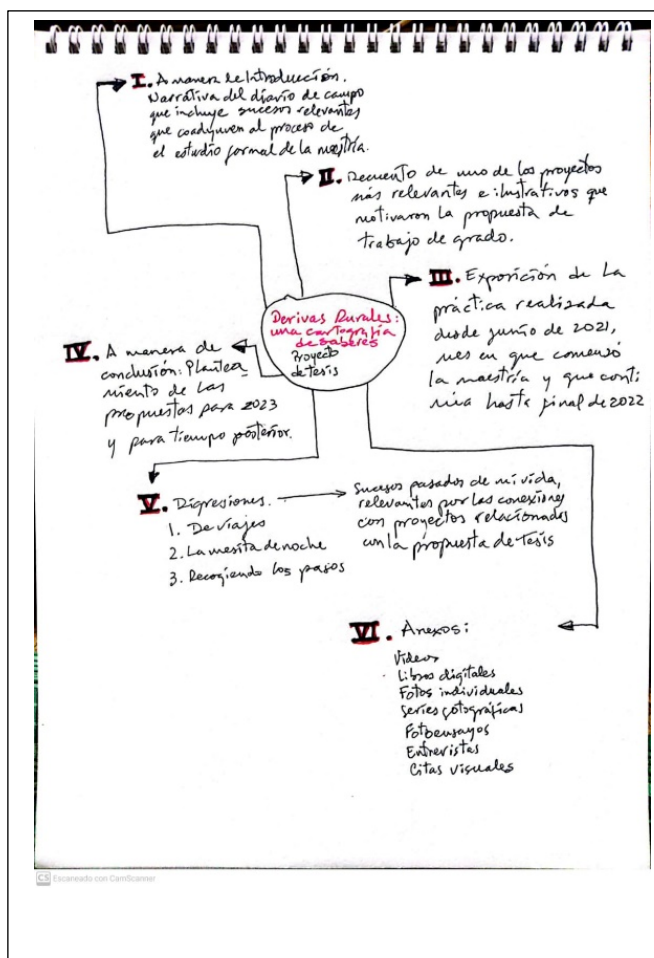 I. A manera de Introducción.
Narrativa del diario de campo
que incluye sucesos relevantes
que coadyuven al proceso de
el estudio formal de la maestría.
II. Recuento de uno de los proyectos
más relevantes e ilustrativos que
motivaron la propuesta de
trabajo de grado.
III. Exposición de la
práctica realizada
desde junio de 2021,
mes en que comenzó
la maestría y que conti
núa hasta final de 2022
Derivas Rurales:
una cartografía
de saberes
Proyecto
de tesis
IV. A manera de
conclusión: Plantea
miento de las
propuestas para 2023
y para tiempo posterior.
V. Digresiones.
1. De viajes
2. La mesita de noche
3. Recogiendo los pasos
Sucesos pasados de mi vida,
relevantes por las conexiones
con proyectos relacionados
con la propuesta de tesis
VI. Anexos:
Videos
Libros digitales
Fotos individuales
Series fotográficas
Fotoensayos
Entrevistas
Citas visuales
CS Escaneado con CamScanner